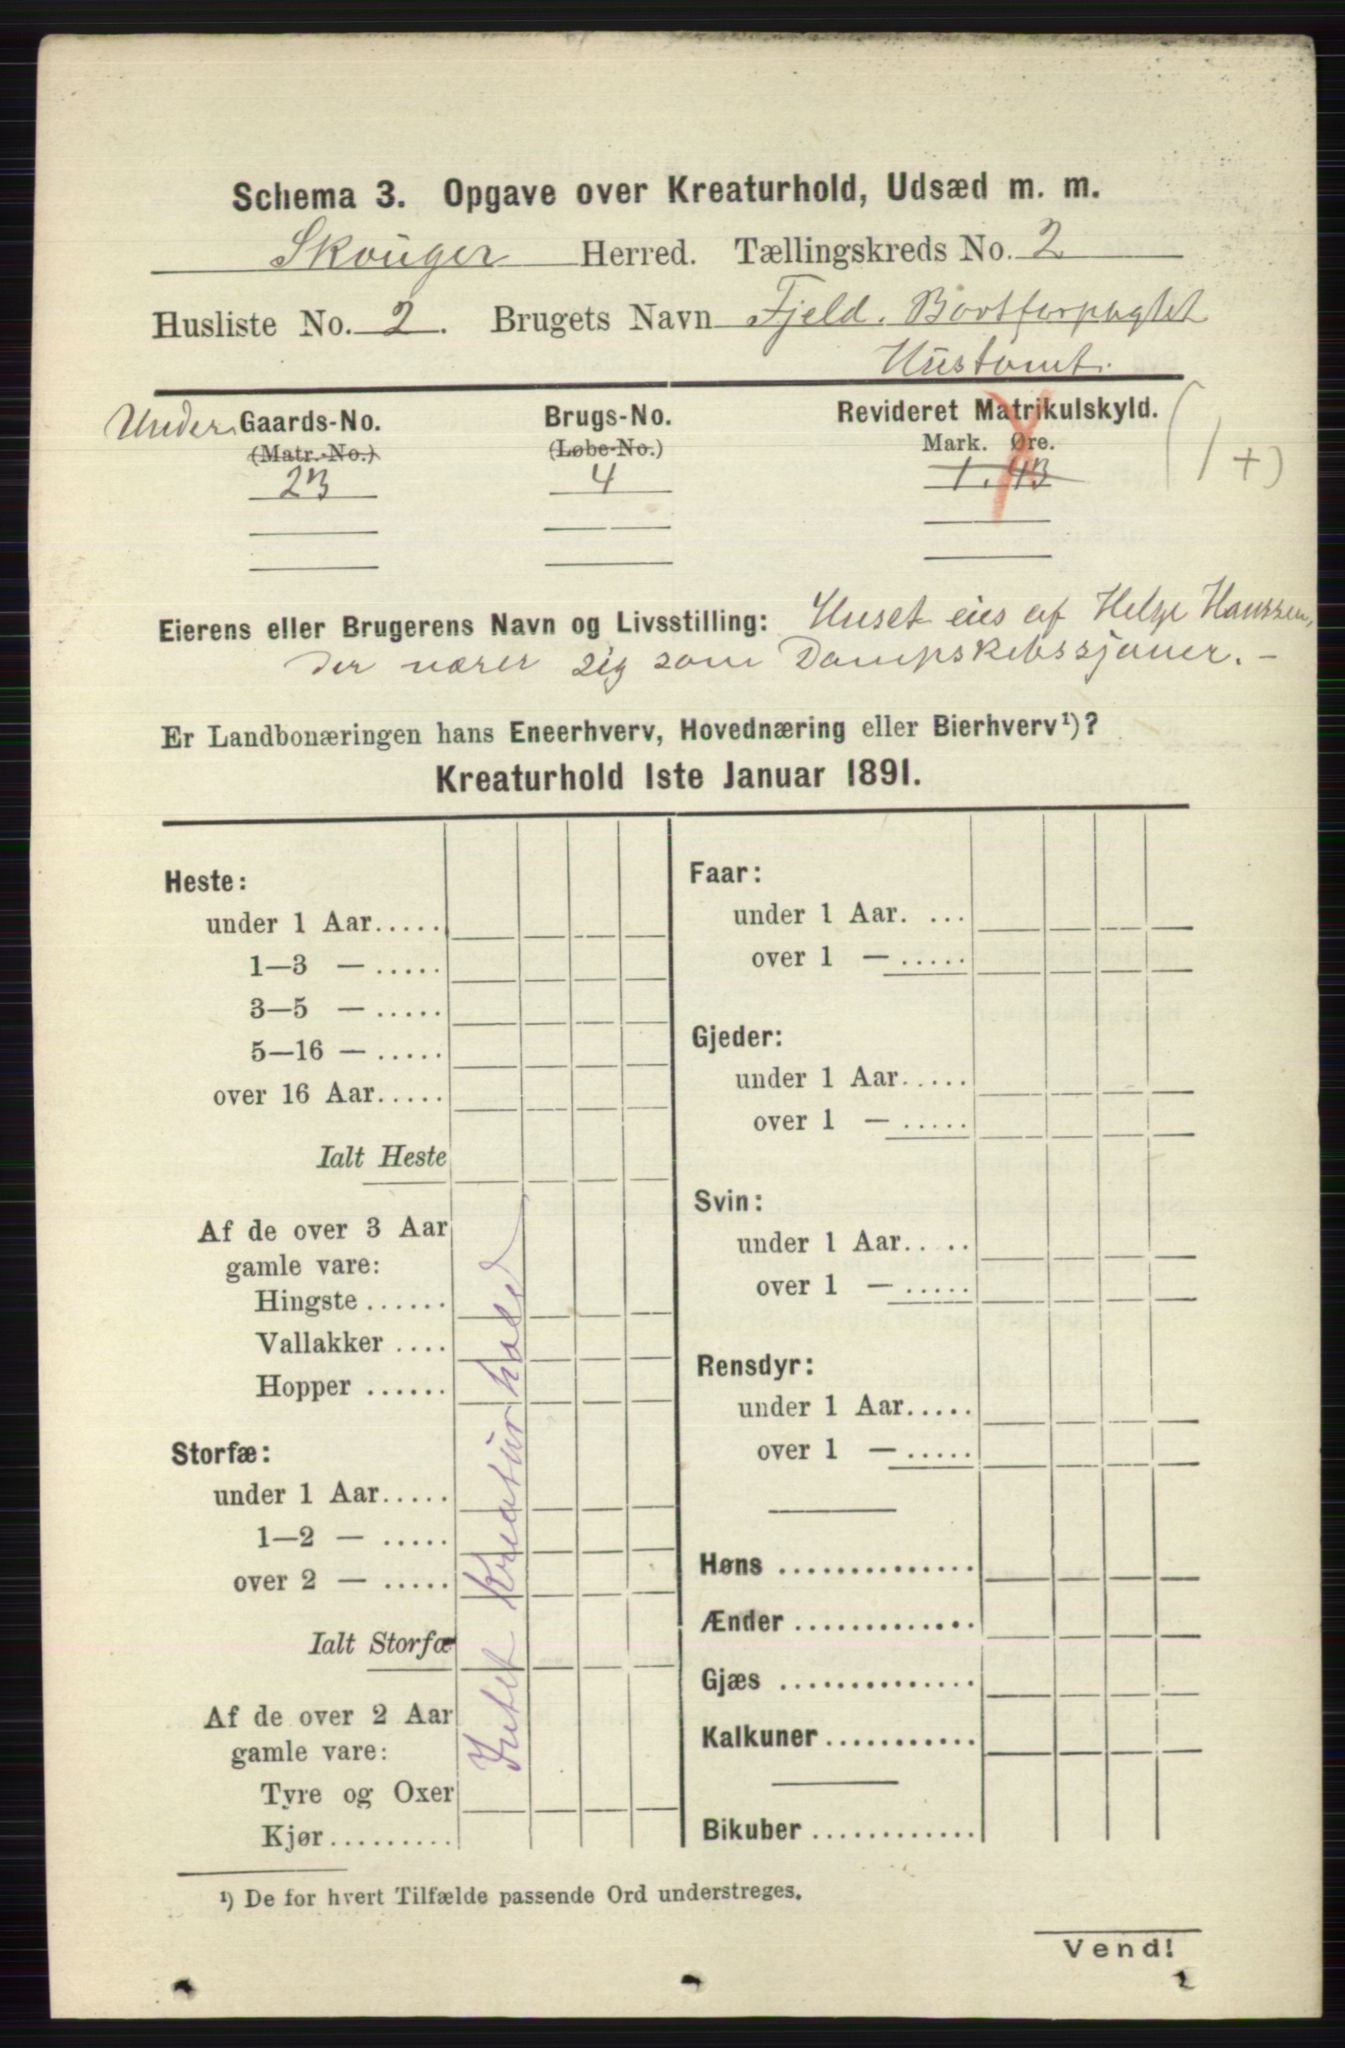 Schema 3. Opgave over Kreaturhold, Udsæd m. m.
Skouger Herred. Tællingskreds No. 2
Husliste No. 2. Brugets Navn Fjeld. Bortforpagtet
Hustomt.
Under Gaards-No. Brugs-No. Revideret Matrikulskyld.
(Matr.-No.) (Løbe-No.) Mark. Øre.
23 4 1.43 (1+)
Eierens eller Brugerens Navn og Livsstilling: Huset eies af Helge Hanssen,
der nærer sig som Dampskibssjauer. –
Er Landbonæringen hans Eneerhverv, Hovednæring eller Bierhverv¹)?
Kreaturhold 1ste Januar 1891.
Heste:
under 1 Aar.....
1—3 — .....
3—5 — .....
5—16 — .....
over 16 Aar.....
Ialt Heste
Af de over 3 Aar
gamle vare:
Hingste ......
Vallakker ....
Hopper ......
Storfæ:
under 1 Aar.....
1—2 — .....
over 2 — .....
Ialt Storfæ
Af de over 2 Aar
gamle vare:
Tyre og Oxer
Kjør.........
Intet Kreaturhold
Faar:
under 1 Aar. ...
over 1 — .....
Gjeder:
under 1 Aar.....
over 1 — .....
Svin:
under 1 Aar.....
over 1 — .....
Rensdyr:
under 1 Aar.....
over 1 — .....
Høns ..............
Ænder .............
Gjæs ..............
Kalkuner ...........
Bikuber ............
¹) De for hvert Tilfælde passende Ord understreges.
Vend!